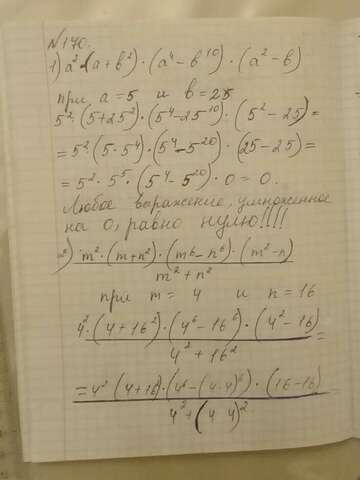 №170.
1) a²·(a+b²)·(a⁴-b¹⁰)·(a²-b)
при a=5 и b=25
5²·(5+25²)·(5⁴-25¹⁰)·(5²-25)=
=5²·(5·5⁴)·(5⁴-5²⁰)·(25-25)=
=5²·5⁵·(5⁴-5²⁰)·0=0.
Любое выражение, умноженное
на 0, равно нулю!!!!
2) m²·(m+n²)·(m⁶-n⁶)·(m²-n)
m²+n²
при m=4 и n=16
4²·(4+16²)·(4⁶-16⁶)·(4²-16)=
4²+16²
=4²·(4+16²)·(4⁶-(4·4)⁶)·(16-16)=
4²+(4·4)²